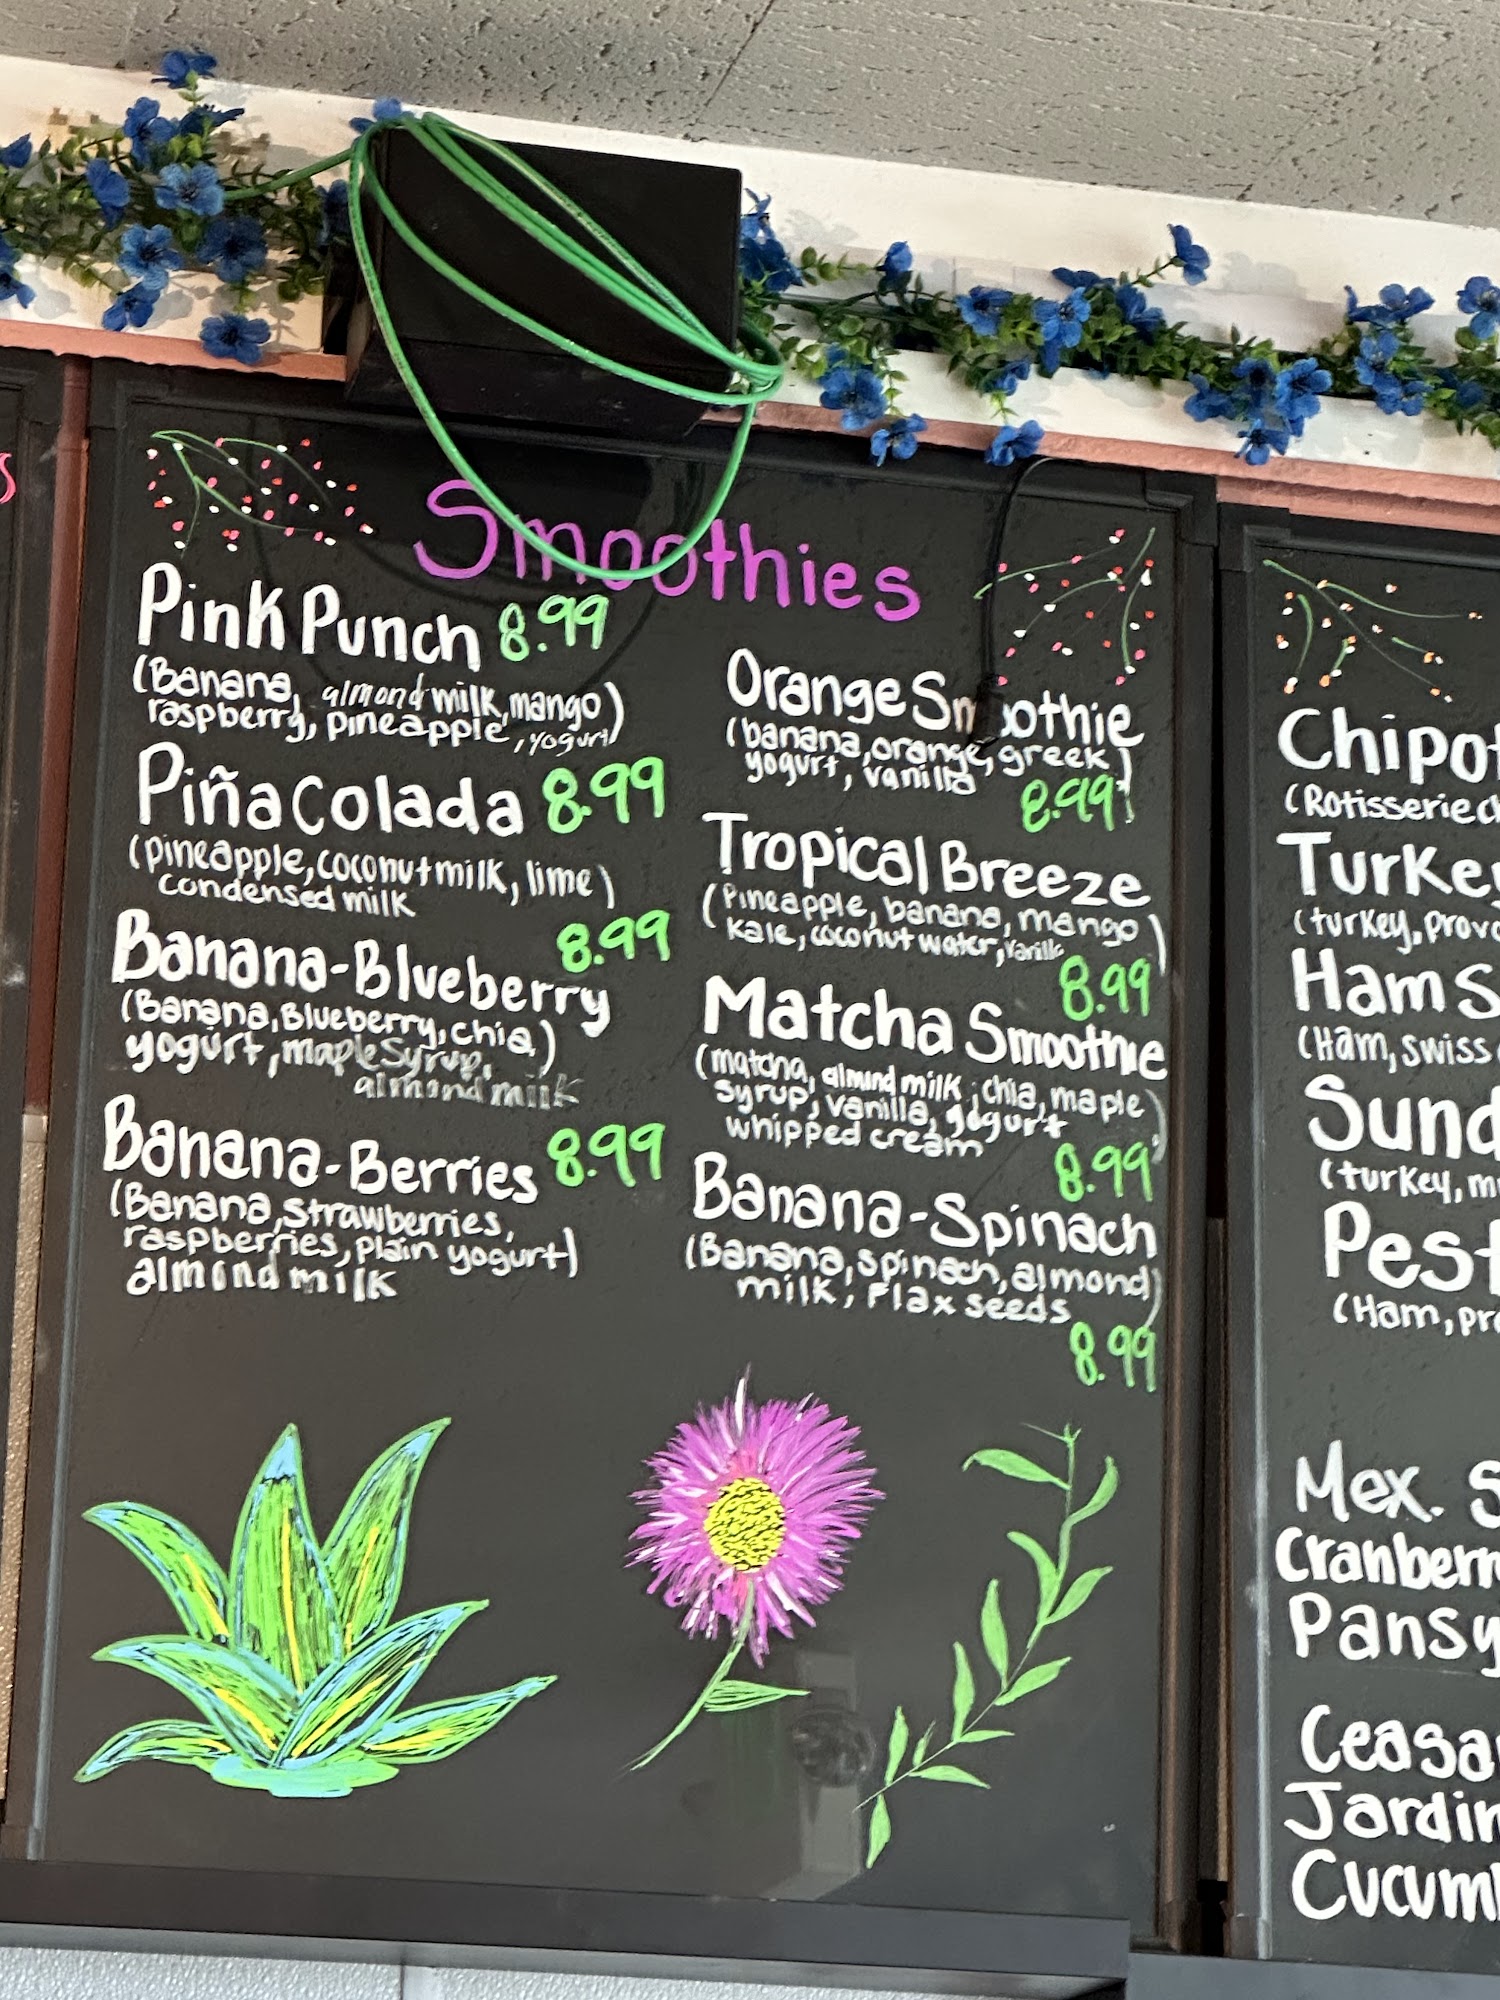 s
Smoothies
Pink Punch 8.99
(Banana, almond milk, mango)
raspberry, pineapple, yogurt
Piña Colada 8.99
(pineapple, coconut milk, lime)
condensed milk
8.99
Banana-Blueberry
(Banana, Blueberry, chia)
yogurt, maple Syrup,
almond milk
Banana-Berries 8.99
(Banana, strawberries,
raspberries, plain yogurt)
almond milk
Orange Smoothie
(banana, orange, greek)
yogurt, vanilla
8.99
Tropical Breeze
(Pineapple, banana, mango)
kale, coconut water, vanilla
8.99
Matcha Smoothie
(matcha, almond milk, chia, maple)
syrup, vanilla, yogurt
whipped cream
8.99
Banana-Spinach
(Banana, spinach, almond)
milk, Flax seeds
8.99
Chipot
(Rotisserie ch
Turkey
(turkey, provo
Ham S
(Ham, swiss
Sund
(turkey, m
Pest
(Ham, pro
Mex. S
Cranberr
Pansy
Ceasa
Jardin
Cucum